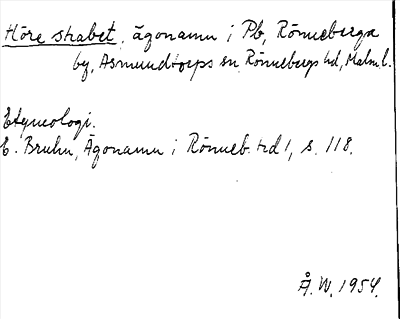 Höre skabet, ägonamn i Pb, Rönneberga
by, Asmundtorps sn, Rönnebergs hd, Malm. l.
Etymologi.
E. Bruhn, Ägonamn i Rönneb. hd 1, s. 118.
Å. W. 1954.